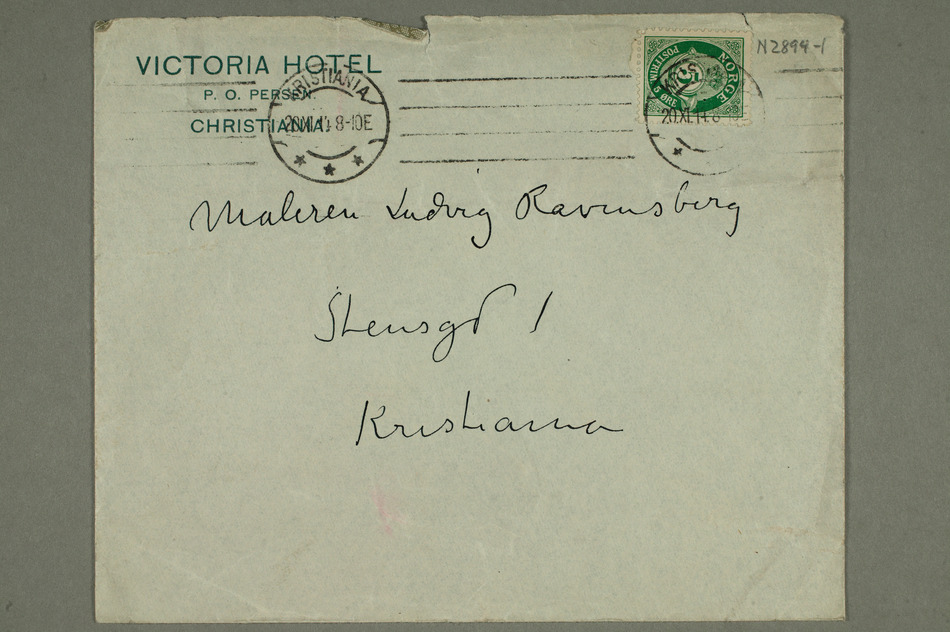 VICTORIA HOTEL
P. O. PERSEN.
CHRISTIANIA.
KRISTIANIA
20.XI.14 8-10E
NORGE
POSTFRIM
5 ØRE
20XI.14.8
N2894-1
Maleren Ludvig Ravensberg
Stensgd 1
Kristiania